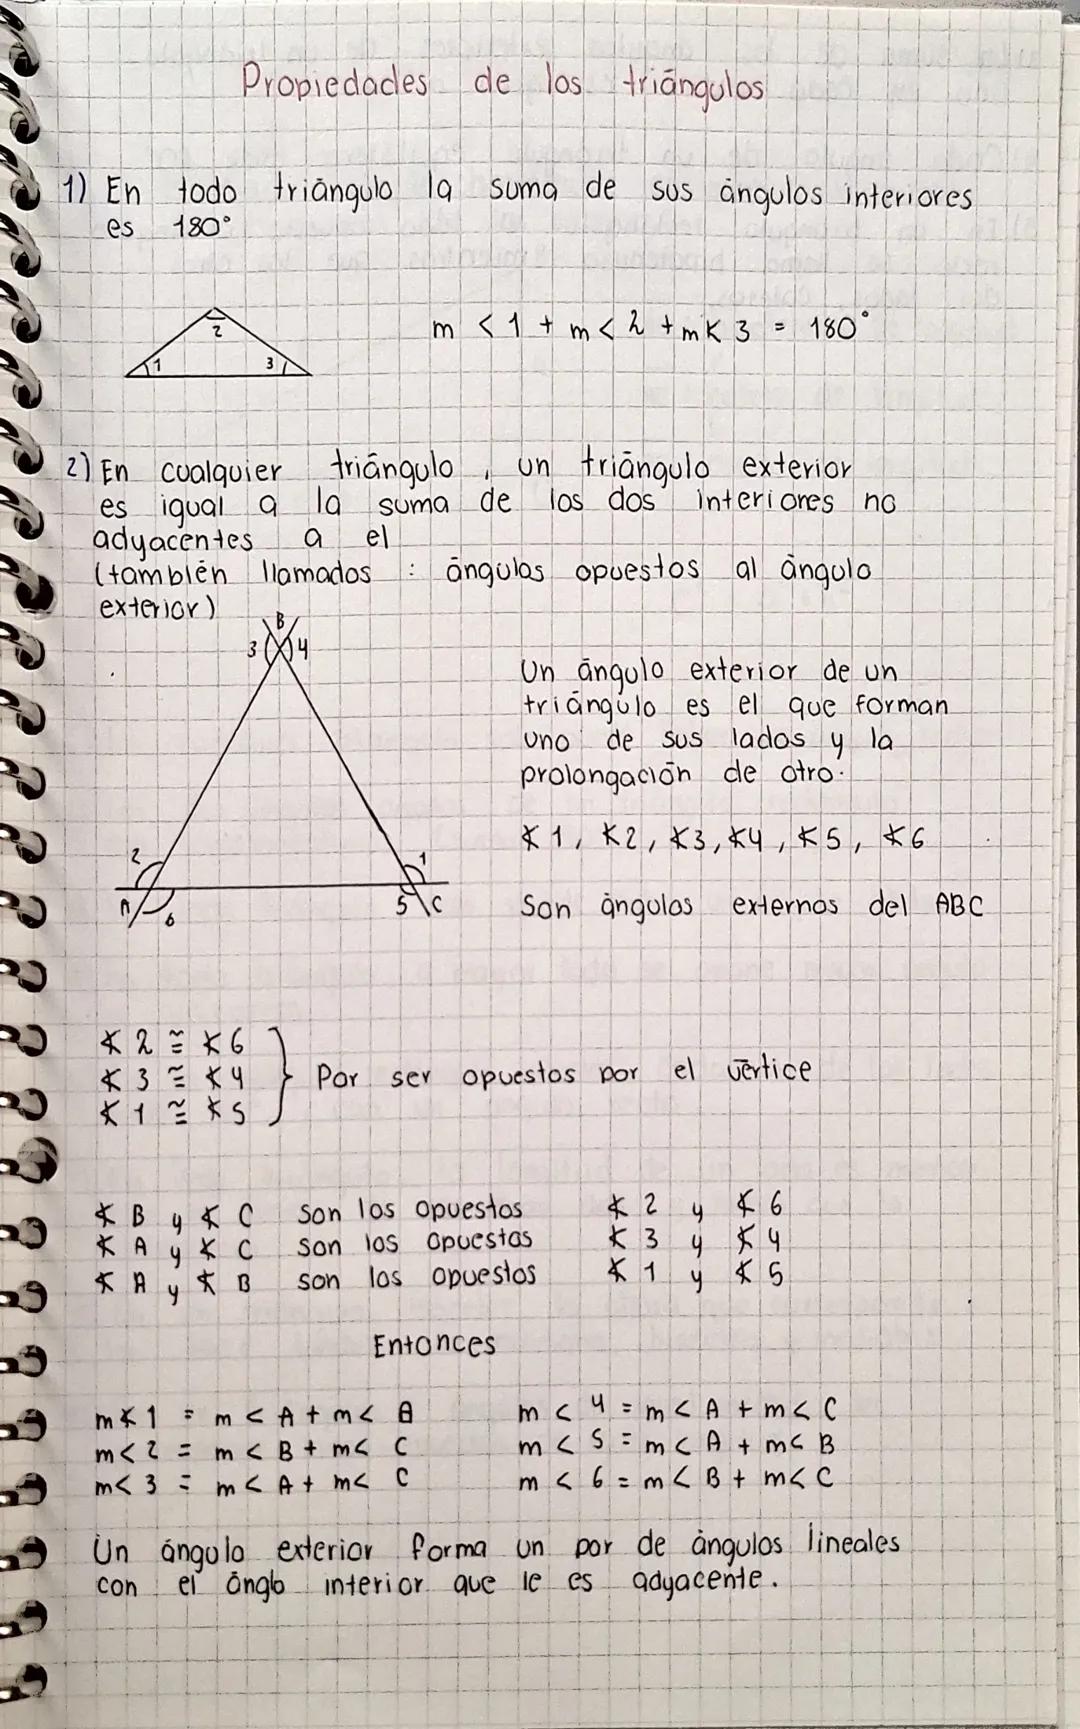 Propiedades de los triángulos
1) En todo triángulo la suma de sus ángulos interiores
es 180°
2
1
3
m < 1 + m < 2 + m∢ 3 = 180°
2) En cualquier triángulo, un triángulo exterior
es igual a la suma de los dos interiores no
adyacentes a el
(también llamados : ángulos opuestos al ángulo
exterior)
B
3 4
Un ángulo exterior de un
triángulo es el que forman
uno de sus lados y la
prolongación de otro.
∢1, ∢2, ∢3, ∢4, ∢5, ∢6
2 1
A 6 5 C
Son ángulos externos del ABC
∢ 2 ≅ ∢6
∢ 3 ≅ ∢4
∢ 1 ≅ ∢5
Por ser opuestos por el vértice
∢ B y ∢ C son los opuestos ∢ 2 y ∢ 6
∢ A y ∢ C son los opuestos ∢ 3 y ∢ 4
∢ A y ∢ B son los opuestos ∢ 1 y ∢ 5
Entonces
m∢1 = m < A + m< B m < 4 = m < A + m< C
m<2 = m < B + m< C m < 5 = m < A + m< B
m<3 = m < A + m< C m < 6 = m < B + m< C
Un ángulo exterior forma un par de ángulos lineales
con el ánglo interior que le es adyacente.